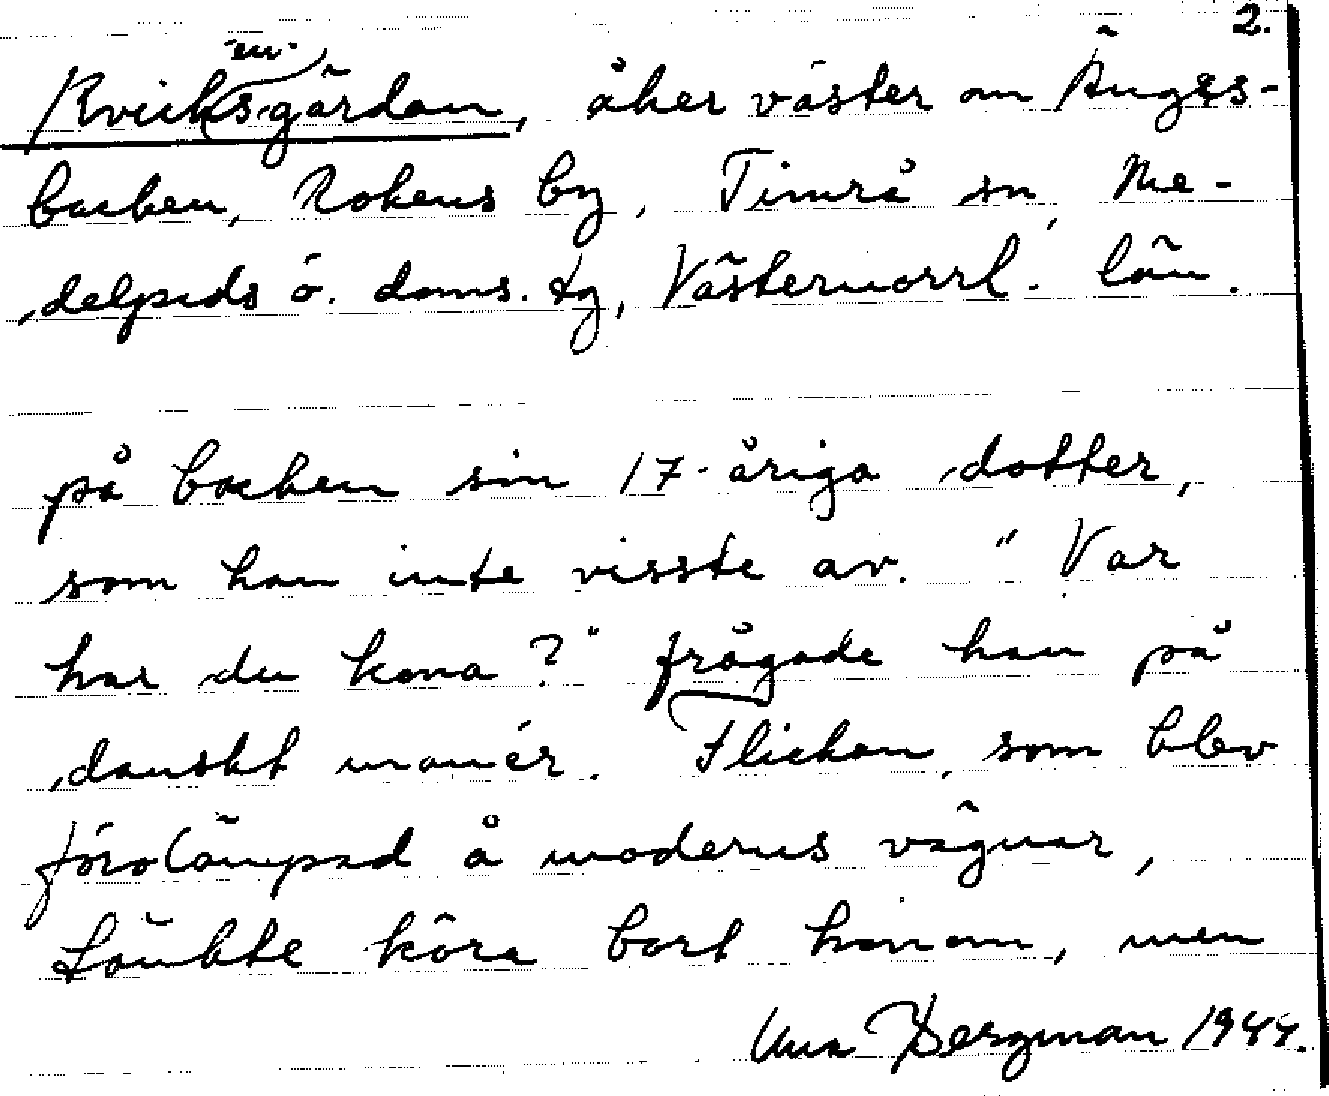 2.
Kvick(en)sgärdan, åker väster om Änges-
backen, Rokens by, Timrå sn, Me-
delpads ö. doms. tg, Västernorrl. län.
på backen sin 17-åriga dotter,
som han inte visste av. "Var
har du kona?" frågade han på
danskt manér. Flickan, som blev
förolämpad å moderns vägnar,
tänkte köra bort honom, men
Bergman 1944.